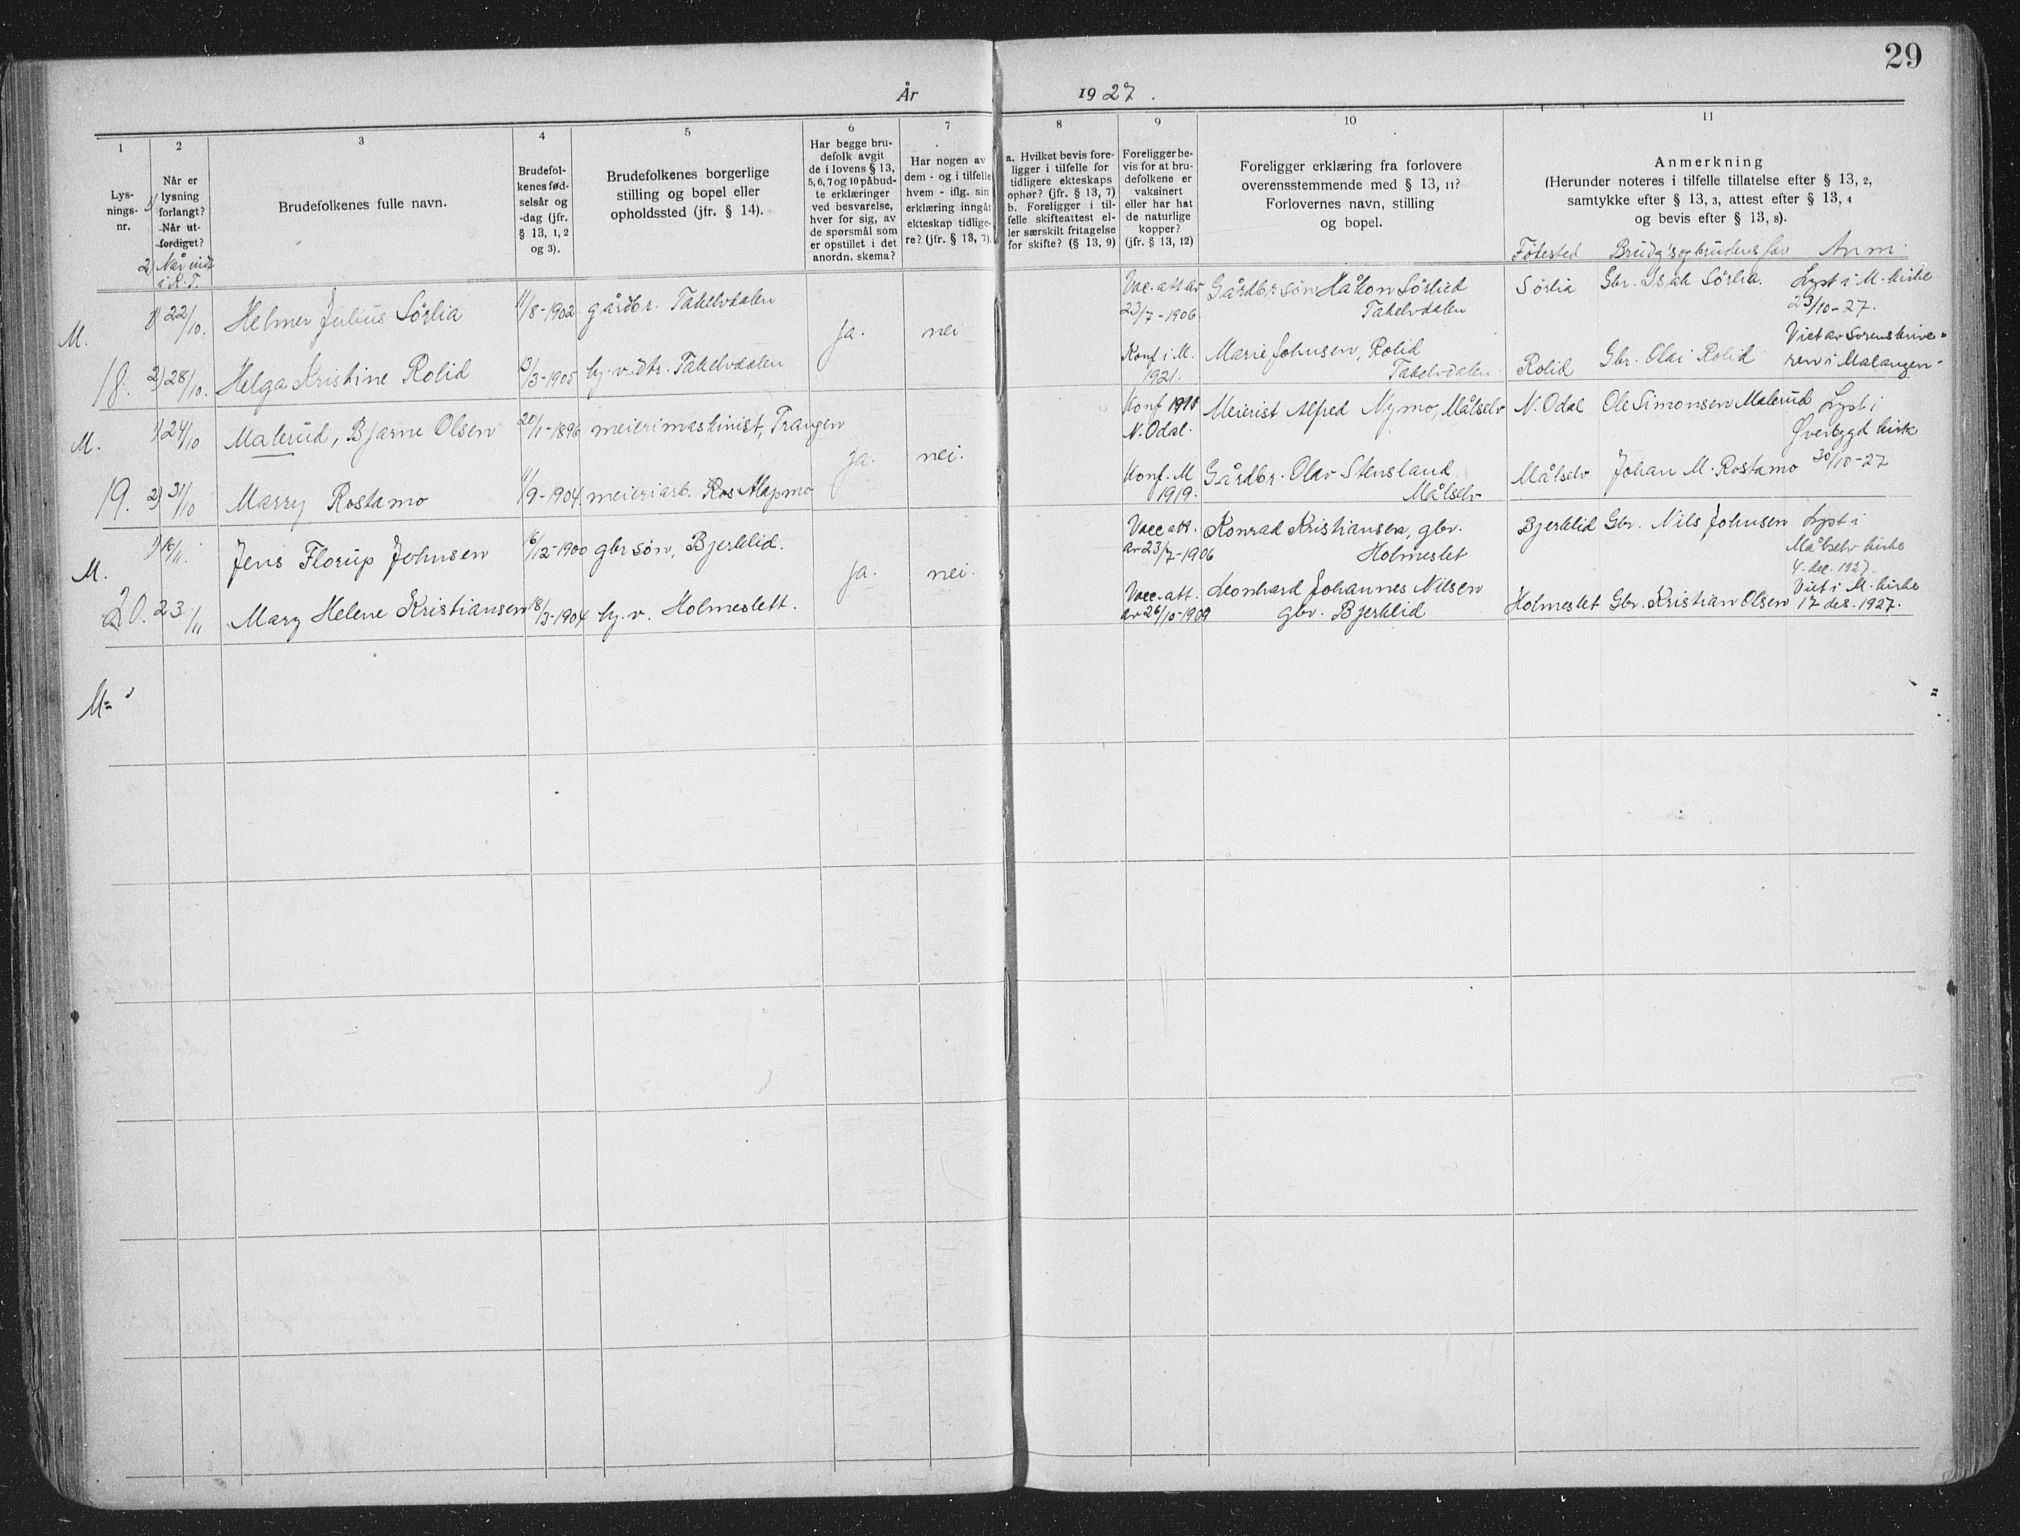 29
År 1927.
1
Lys-
nings-
nr.
2
1) Når er
lysning
forlangt?
Når ut-
ferdiget?
2) Når indt
i K. T.
3
Brudefolkenes fulle navn.
4
Brudefol-
kenes fød-
selsår og
-dag (jfr.
§ 13, 1, 2
og 3).
5
Brudefolkenes borgerlige
stilling og bopel eller
opholdssted (jfr. § 14).
6
Har begge bru-
defolk avgit
de i lovens § 13,
5, 6, 7 og 10 påbud-
te erklæringer
ved besvarelse,
hver for sig, av
de spørsmål som
er opstillet i det
anordn. skema?
7
Har nogen av
dem - og i tilfelle
hvem - iflg. sin
erklæring inngåt
ekteskap tidlige-
re? (jfr. § 13, 7).
8
a. Hvilket bevis fore-
ligger i tilfelle for
tidligere ekteskaps
ophør? (jfr. § 13, 7)
b. Foreligger i til-
felle skifteattest el-
ler særskilt fritagelse
for skifte? (§ 13, 9)
9
Foreligger be-
vis for at bru-
defolkene er
vaksinert
eller har hat
de naturlige
kopper?
(jfr. § 13, 12)
10
Foreligger erklæring fra forlovere
overensstemmende med § 13, 11?
Forlovernes navn, stilling
og bopel.
11
Anmerkning
(Herunder noteres i tilfelle tillatelse efter § 13, 2,
samtykke efter § 13, 3, attest efter § 13, 4
og bevis efter § 13, 8).
Fødested Brudg's og brudens far Anm.
M.
18.
1) 22/10.
Helmer Julius Sørlia
11/8-1902
gårdbr. Takelvdalen
Ja.
nei
Vac. att av
23/7-1906.
Gårdbr søn Håkon Sørlied
Takelvdalen
Sørlia
Gbr. Isak Sørlia.
Lyst i M. kirke
23/10-27.
2) 28/10.
Helga Kristine Rolid
3/3-1905
hj. v. dtr. Takelvdalen
Konf i M.
1921.
Marie Johnsen, Rolid
Takelvdalen
Rolid
Gbr. Olai Rolid
Viet av Sorenskrive-
ren i Malangen-
M.
19.
1) 24/10
Malerud, Bjarne Olsen
20/1-1896
meierimaskinist, Trangen
Ja.
nei.
Konf 1911
N. Odal.
Meierist Alfred Nymo, Målselv
N. Odal
Ole Simonsen Malerud
Lyst i
Øverbygd kirk
30/10-27
2) 31/10
Marry Rostamo
11/9-1904
meieriarb. Ros Alapmo
Konf. M
1919.
Gårdbr. Olav Stensland
Målselv
Målselv
Johan M. Rostamo
M.
20.
1) 16/11.
Jens Florup Johnsen
6/12-1900
gbr søn, Bjerklid.
Ja.
nei.
Vacc att.
av 23/7-1906
Konrad Kristiansen, gbr.
Holmeslet
Bjerklid
Gbr. Nils Johnsen
Lyst i
Målselv kirke
4. dec. 1927
23/11
Mary Helene Kristiansen
18/3-1904
hj. v. Holmeslett.
Vacc. att.
av 26/10-1909
Leonhard Johannes Nilsen
gbr. Bjerklid
Holmeslet
Gbr. Kristian Olsen
Viet i M. kirke
17 des. 1927.
M=